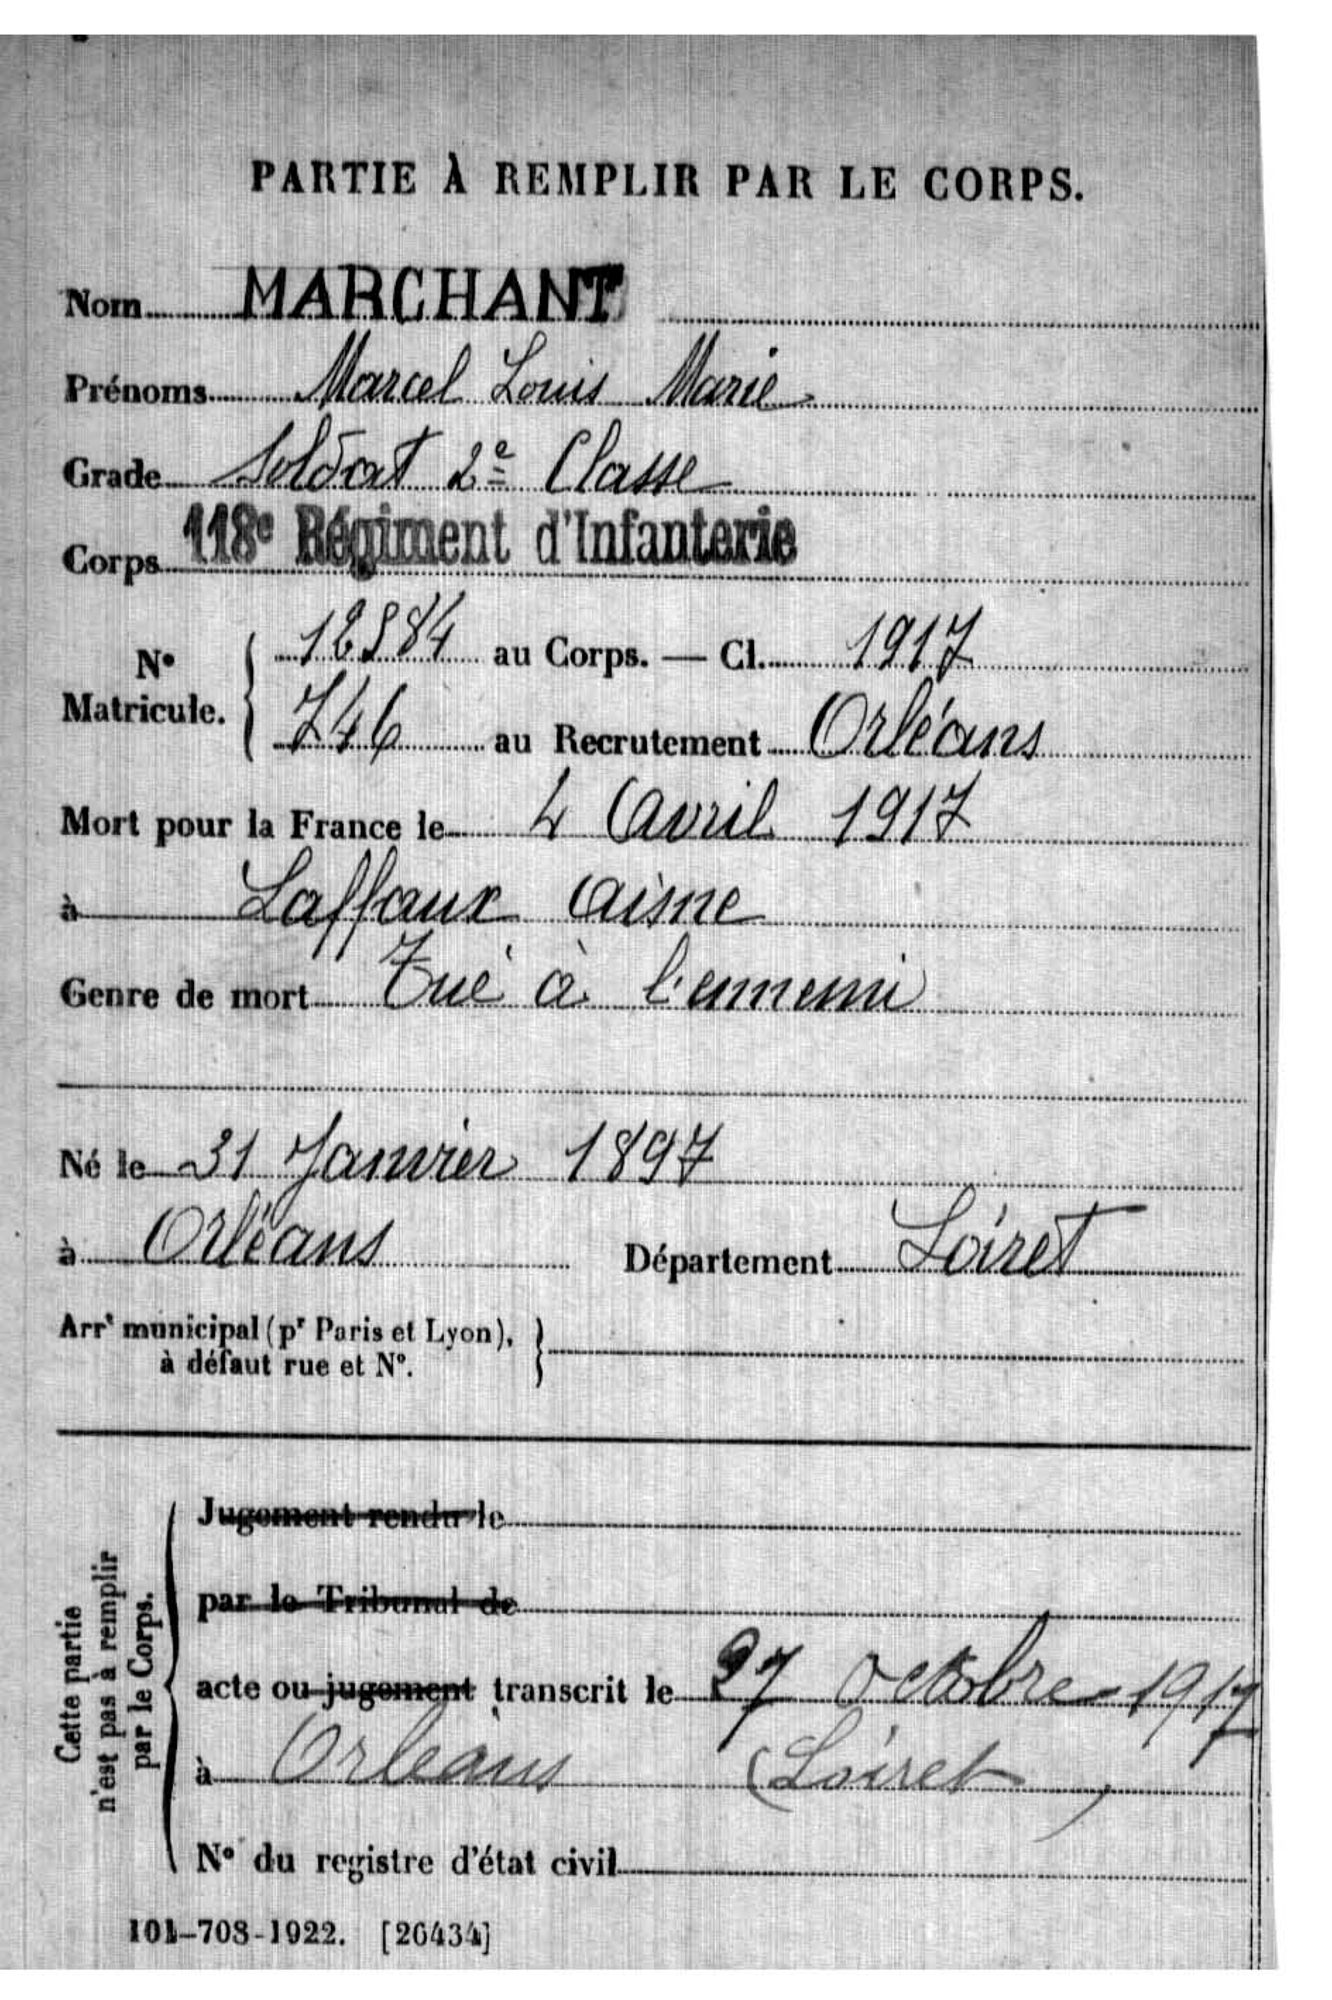 PARTIE À REMPLIR PAR LE CORPS.
Nom MARCHANT
Prénoms Marcel Louis Marie
Grade Soldat 2e Classe
Corps 118e Régiment d'Infanterie
N° Matricule. { au Corps. — Cl. 1917
746 au Recrutement Orléans
Mort pour la France le 4 Avril 1917
à Laffaux Aisne
Genre de mort Tué à l'ennemi
Né le 31 Janvier 1897
à Orléans Département Loiret
Arrt municipal (pr Paris et Lyon), }
à défaut rue et N°.
Cette partie n'est pas à remplir par le Corps.
Jugement rendu le
par le Tribunal de
acte ou jugement transcrit le 27 octobre 1917
à Orléans (Loiret)
N° du registre d'état civil
101-708-1922. [26434]